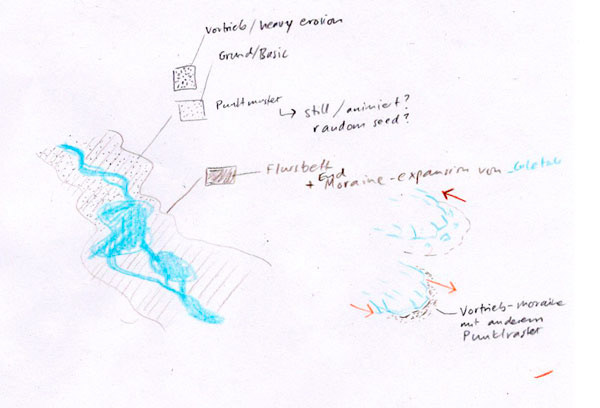 Vortrieb/heavy erosion
Grund/Basic
Punktmuster
↳ still/animiert?
random seed?
Flussbett
+ End Moraine-expansion von
Vortrieb-moraine
mit anderem
Punktraster